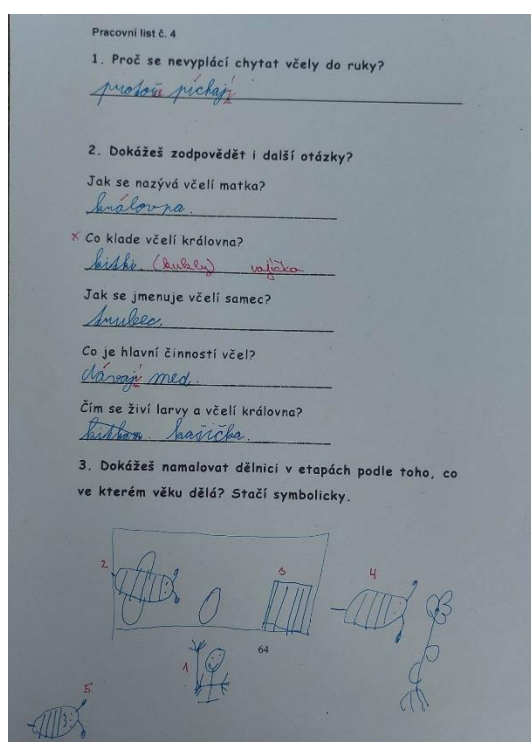 Pracovní list č. 4
1. Proč se nevyplácí chytat včely do ruky?
protože píchají
2. Dokážeš zodpovědět i další otázky?
Jak se nazývá včelí matka?
královna.
x Co klade včelí královna?
(kukly) vajíčka
Jak se jmenuje včelí samec?
Co je hlavní činností včel?
dávají med.
Čím se živí larvy a včelí královna?
kašička.
3. Dokážeš namalovat dělnici v etapách podle toho, co
ve kterém věku dělá? Stačí symbolicky.
2 3 4
64
1
5